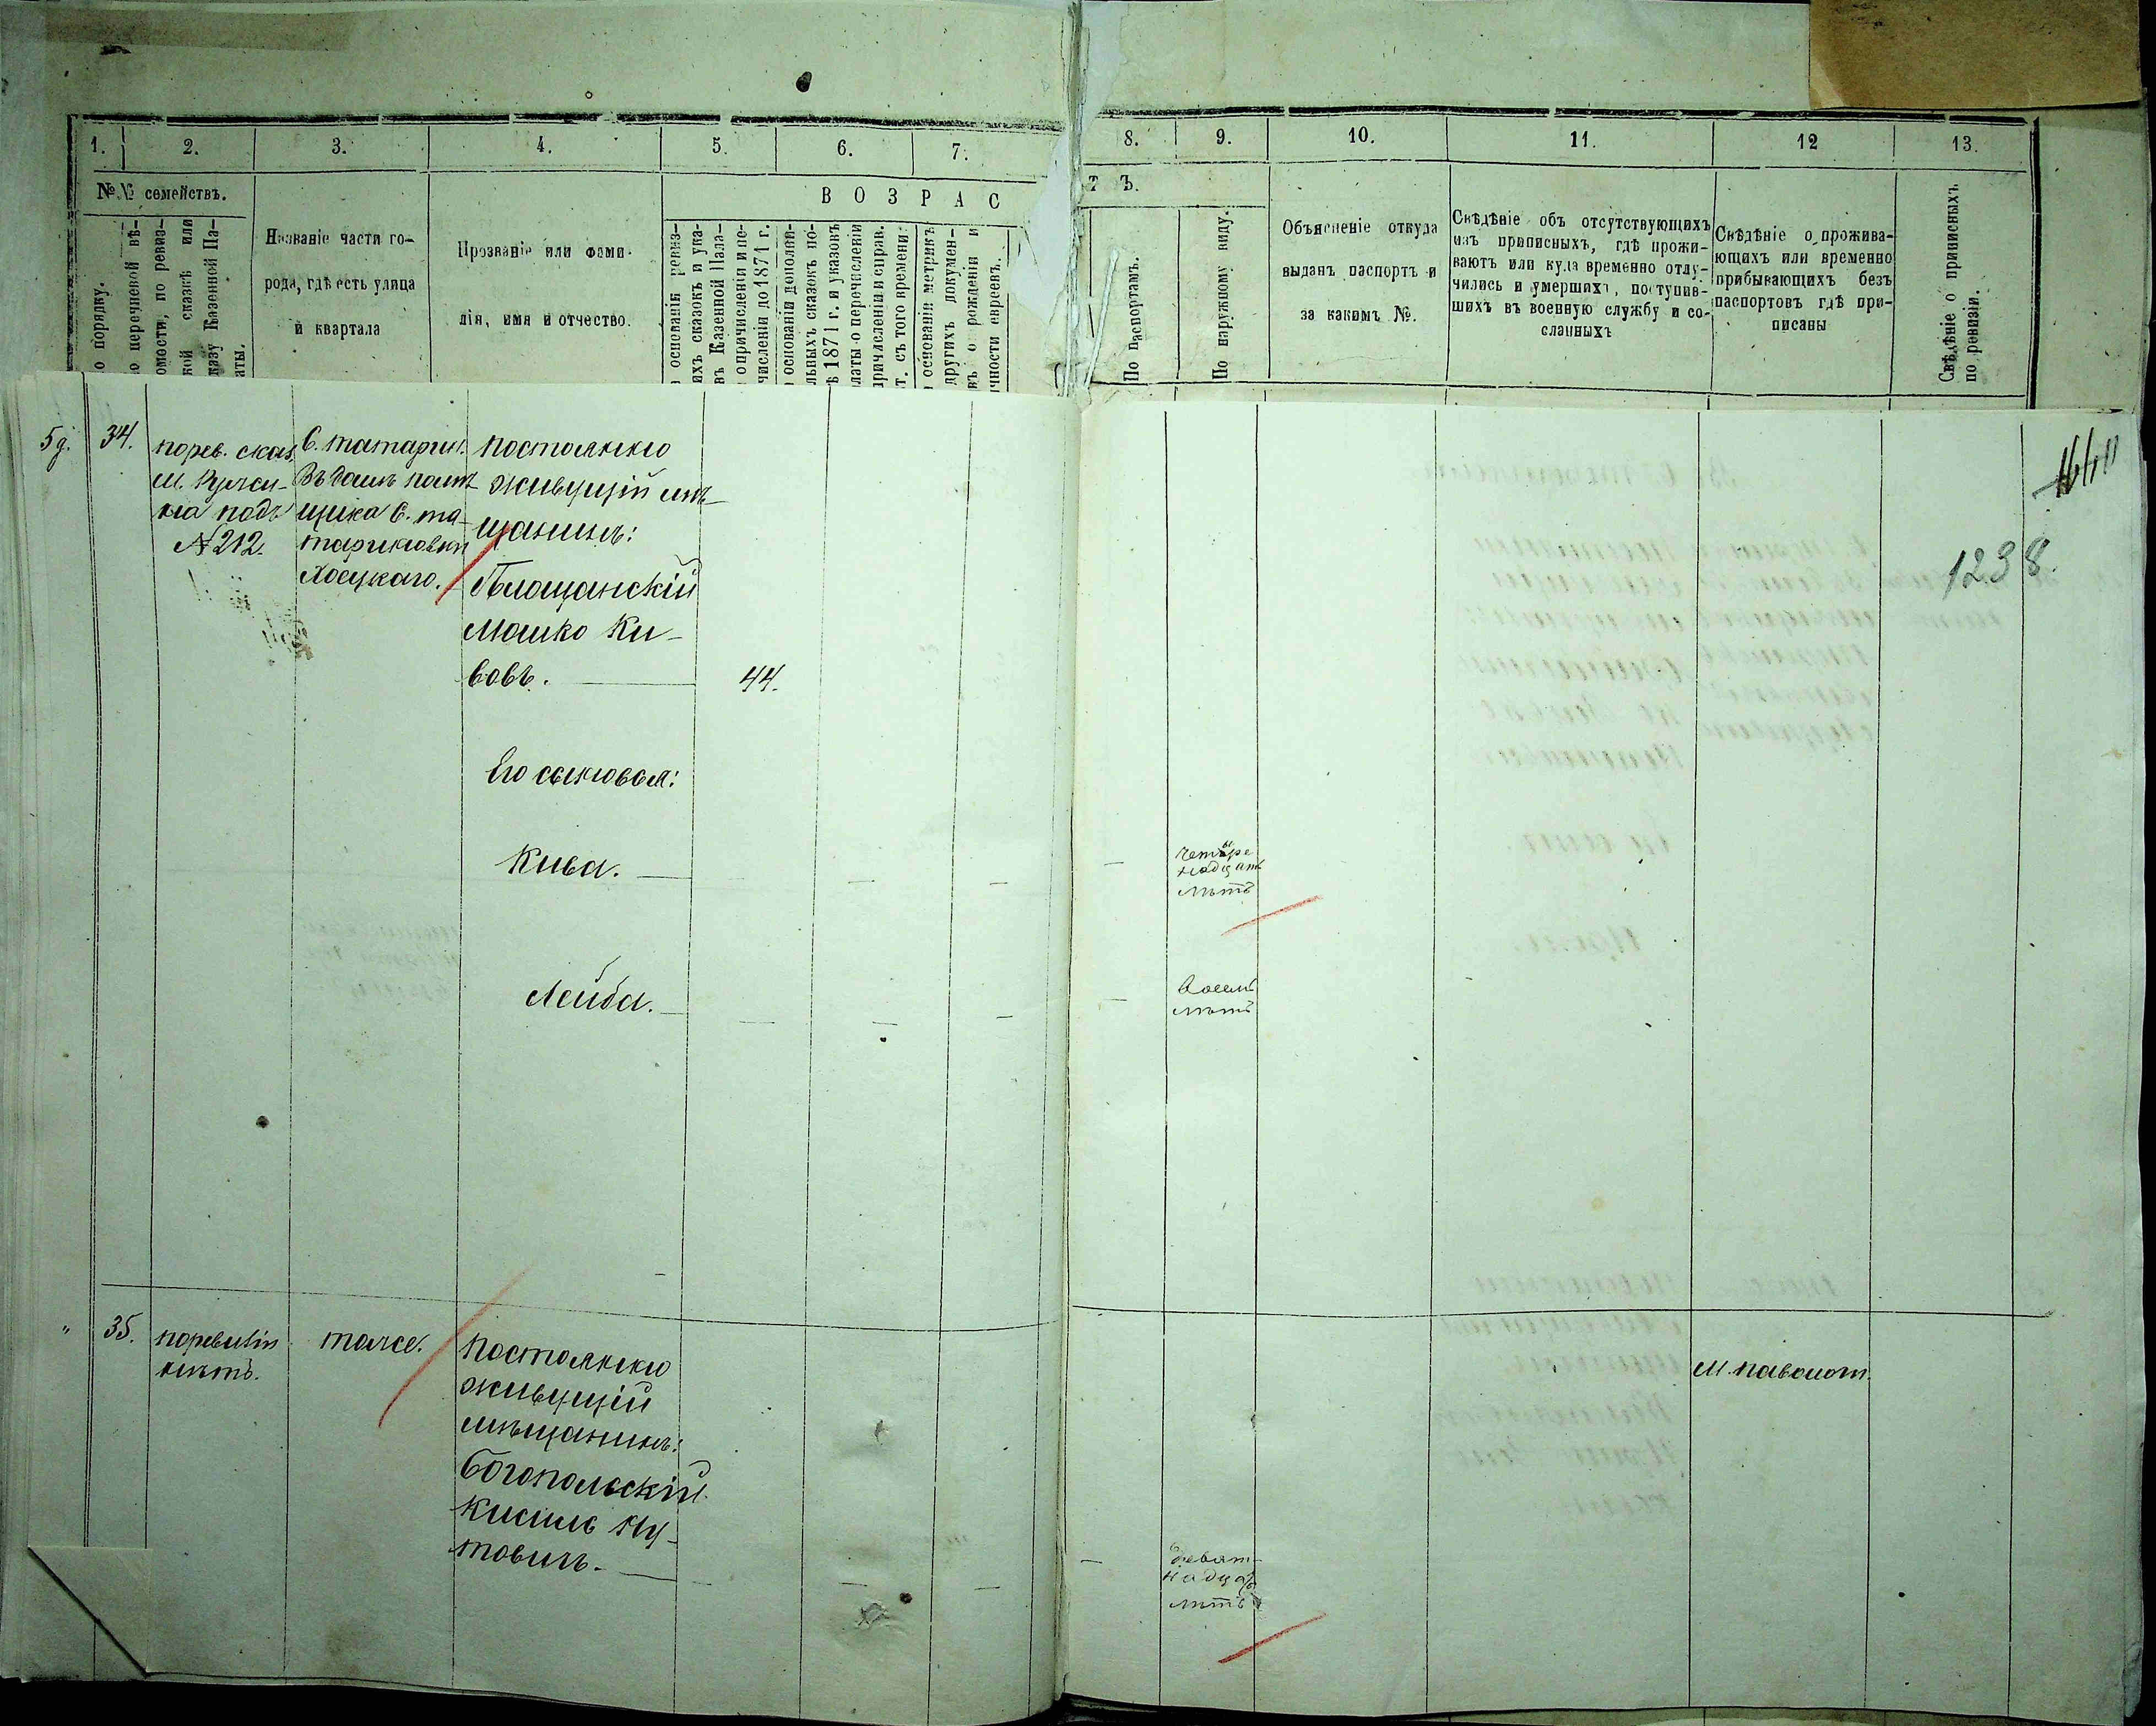 1. 2. 3. 4. 5. 6. 7. 8. 9. 10. 11. 12 13.
№№ семействъ.
Названіе части го-
рода, гдѣ есть улица
и квартала
Прозваніе или фами-
лія, имя и отчество.
ВОЗРАС
ТЪ.
о порядку.
о перечневой вѣ-
омости, по ревиз-
кой сказкѣ или
казу Казенной Па-
аты.
основаніи ревиз-
ихъ сказокъ и ука-
въ Казенной Пала-
о причисленіи и пе-
численіи до 1871 г.
основаніи дополни-
льныхъ сказокъ по-
ѣ 1871 г. и указовъ
латы о перечисленіи
причисленіи и справ.
т. съ того времени.
основаніи метрикъ
другихъ докумен-
въ о рожденіи и
чности евреевъ.
По паспортамъ.
По наружному виду.
Объясненіе откуда
выданъ паспортъ и
за какимъ №.
Свѣдѣніе объ отсутствующихъ
изъ приписныхъ, гдѣ прожи-
ваютъ или куда временно отлу-
чились и умершихъ, поступив-
шихъ въ военную службу и со-
сланныхъ
Свѣдѣніе о прожива-
ющихъ или временно
прибывающихъ безъ
паспортовъ гдѣ при-
писаны
Свѣдѣніе о приписныхъ
по ревизіи.
34.
порев. сказ.
м. Ружи-
на подъ
№ 212.
С. татарин.
Въ домѣ помѣ-
щика С. та-
тариновки
постоянно
живущій мѣ-
щанинъ:
Бѣлощанскій
Мошко Ки-
вовъ.
44.
Его сыновья:
Кива.
четыре
надцать
лѣтъ
Лейба.
восемь
лѣтъ
1238.
" 35.
поревизіи
нѣтъ.
тоже.
постоянно
живущій
мѣщанинъ:
Богопольскій
Кисиль Ну-
товичъ.
девят-
надцать
лѣтъ
м. паволочь.